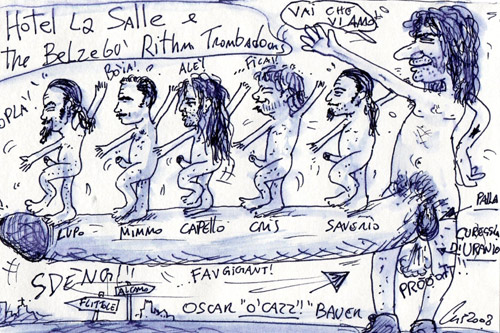 HOTEL LA SALLE e
the BELZEBÙ RITHM TROMBADOURS
VAI CHE
VI AMO
OPLÀ!
BOIA!
ALÈ!
FICA!
LUPO
MIMMO
CAPELLO
CRIS
SAVERIO
PALLA
CUREGGIA
D'URANIO
PROOOT!!
SDENG!!!
FAVGIGIANT!
ALCAMO
FLITELEI
OSCAR "O'CAZZ!" BAUER
2008